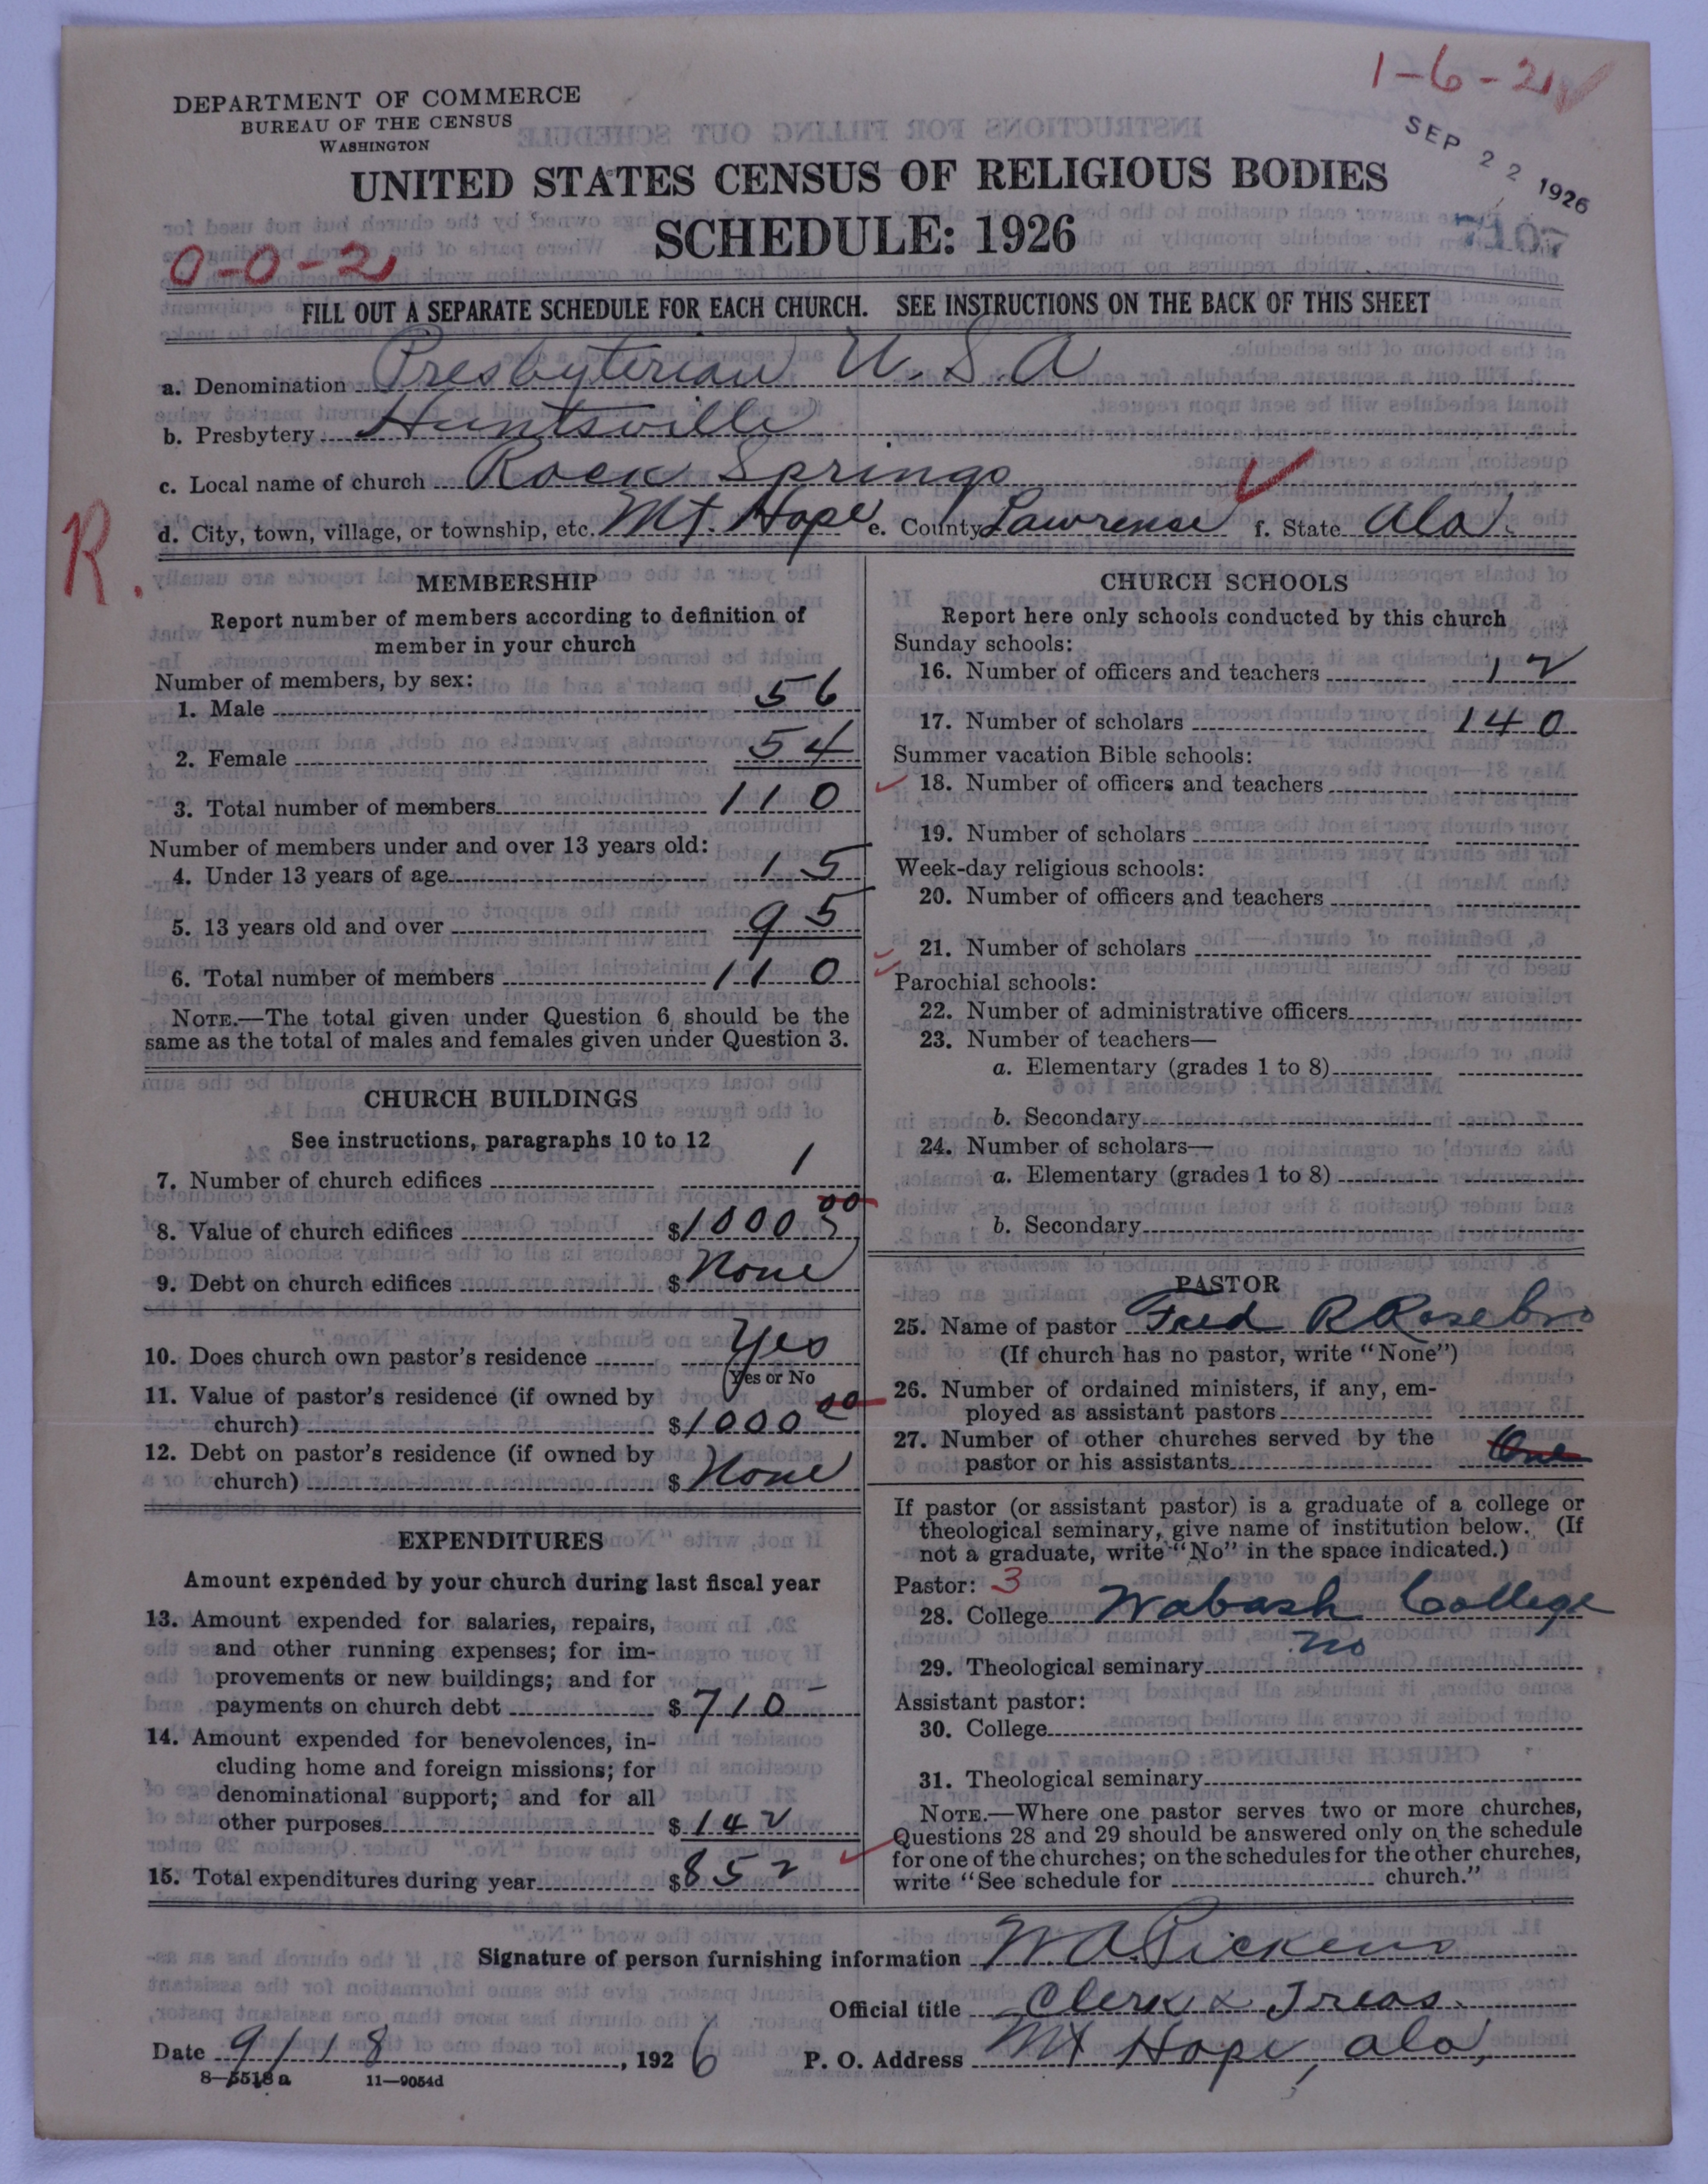 1-6-2
DEPARTMENT OF COMMERCE
BUREAU OF THE CENSUS
WASHINGTON
SEP 22 1926
7107
UNITED STATES CENSUS OF RELIGIOUS BODIES
SCHEDULE: 1926
0-0-2
FILL OUT A SEPARATE SCHEDULE FOR EACH CHURCH. SEE INSTRUCTIONS ON THE BACK OF THIS SHEET
a. Denomination Presbyterian U.S.A
b. Presbytery Huntsville
c. Local name of church Rock Springs
d. City, town, village, or township, etc. Mt. Hope e. County Lawrense f. State Ala.
R.
MEMBERSHIP
Report number of members according to definition of
member in your church
Number of members, by sex:
1. Male 56
2. Female 54
3. Total number of members 110
Number of members under and over 13 years old:
4. Under 13 years of age 15
5. 13 years old and over 95
6. Total number of members 110
NOTE.—The total given under Question 6 should be the
same as the total of males and females given under Question 3.
CHURCH BUILDINGS
See instructions, paragraphs 10 to 12
7. Number of church edifices 1
8. Value of church edifices $1000 00
9. Debt on church edifices $None
10. Does church own pastor's residence Yes
(Yes or No
11. Value of pastor's residence (if owned by
church) $1000 00
12. Debt on pastor's residence (if owned by
church) $None
EXPENDITURES
Amount expended by your church during last fiscal year
13. Amount expended for salaries, repairs,
and other running expenses; for im-
provements or new buildings; and for
payments on church debt $710
14. Amount expended for benevolences, in-
cluding home and foreign missions; for
denominational support; and for all
other purposes $142
15. Total expenditures during year $852
CHURCH SCHOOLS
Report here only schools conducted by this church
Sunday schools:
16. Number of officers and teachers 12
17. Number of scholars 140
Summer vacation Bible schools:
18. Number of officers and teachers
19. Number of scholars
Week-day religious schools:
20. Number of officers and teachers
21. Number of scholars
Parochial schools:
22. Number of administrative officers
23. Number of teachers—
a. Elementary (grades 1 to 8)
b. Secondary
24. Number of scholars—
a. Elementary (grades 1 to 8)
b. Secondary
PASTOR
25. Name of pastor Fred R Rosebro
(If church has no pastor, write "None")
26. Number of ordained ministers, if any, em-
ployed as assistant pastors
27. Number of other churches served by the
pastor or his assistants One
If pastor (or assistant pastor) is a graduate of a college or
theological seminary, give name of institution below. (If
not a graduate, write "No" in the space indicated.)
Pastor: 3
28. College Wabash College
29. Theological seminary no
Assistant pastor:
30. College
31. Theological seminary
NOTE.—Where one pastor serves two or more churches,
Questions 28 and 29 should be answered only on the schedule
for one of the churches; on the schedules for the other churches,
write "See schedule for church."
Signature of person furnishing information W A Pickens
Official title Clerk & Treas.
Date 9/18, 1926 P. O. Address Mt Hope, Ala,
8-5518a 11-9054d